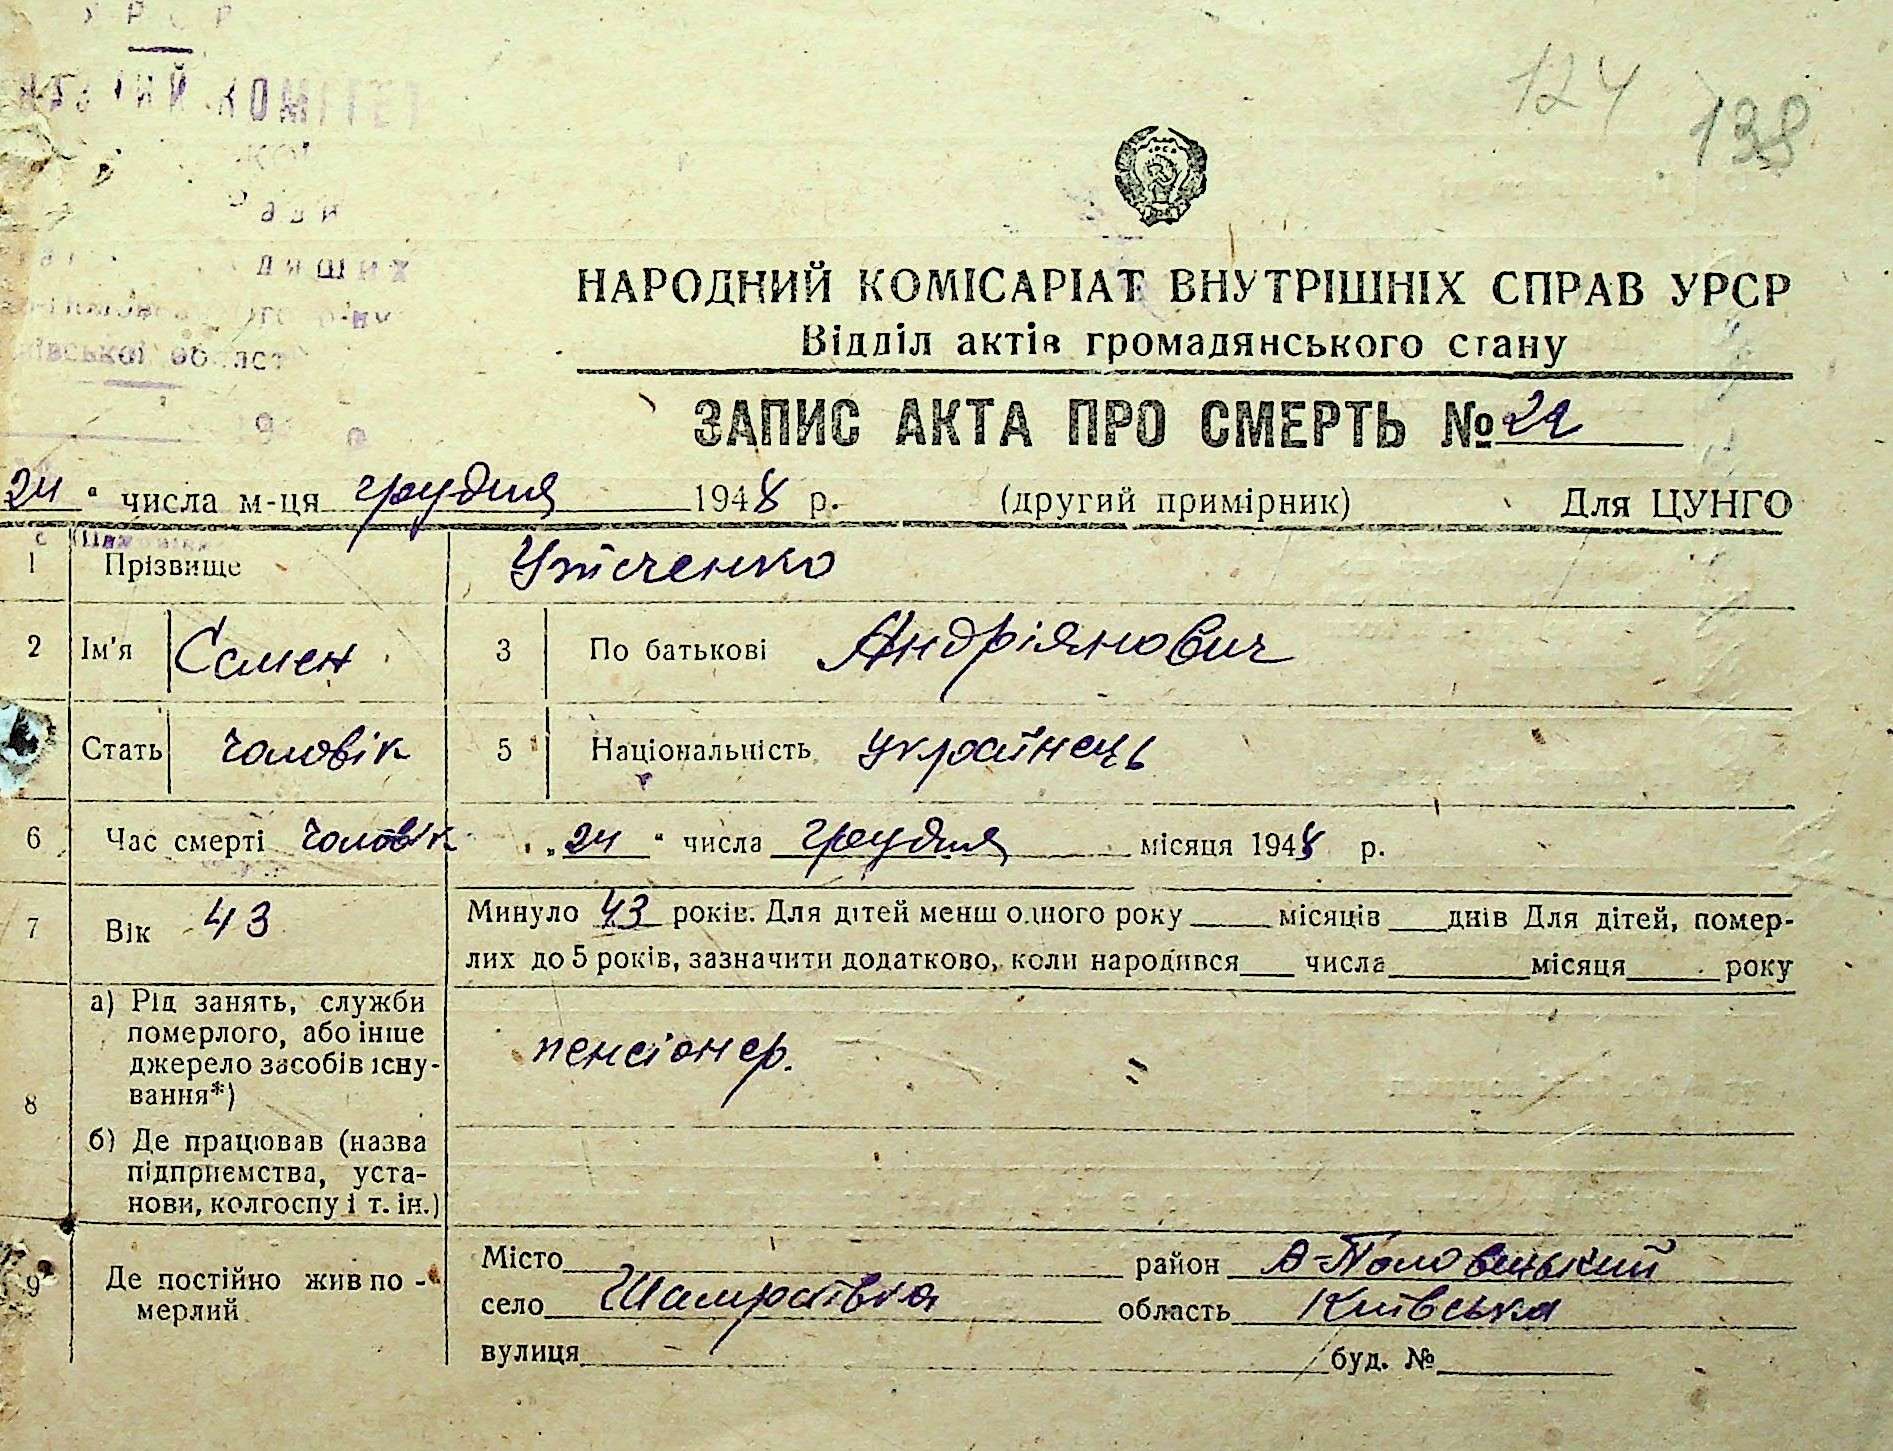 У Р С Р
КОМІТЕТ
124 138
НАРОДНИЙ КОМІСАРІАТ ВНУТРІШНІХ СПРАВ УРСР
Відділ актів громадянського стану
ЗАПИС АКТА ПРО СМЕРТЬ №
24 " числа м-ця грудня 1948 р. (другий примірник) Для ЦУНГО
1 Прізвище
2 Ім'я Семен 3 По батькові Андріянович
Стать чоловік 5 Національність українець
6 Час смерті чоловік „24 " числа грудня місяця 1948 р.
7 Вік 43 Минуло 43 років. Для дітей менш одного року місяців днів Для дітей, помер-
лих до 5 років, зазначити додатково, коли народився числа місяця року
8 а) Рід занять, служби
померлого, або інше
джерело засобів існу-
вання*)
пенсіонер.
б) Де працював (назва
підприємства, уста-
нови, колгоспу і т. ін.)
9 Де постійно жив по-
мерлий
Місто район
село Шамраївка область Київська
вулиця буд. №